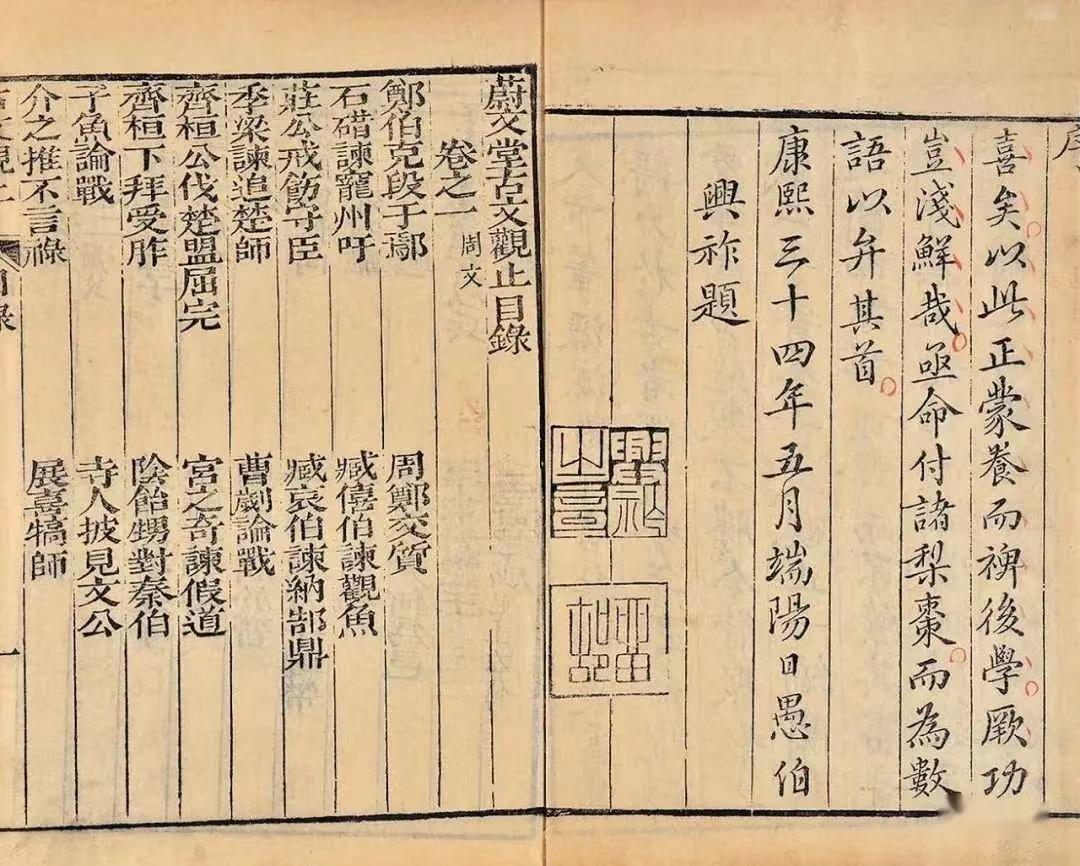 序
喜矣以此正蒙養而裨後學厥功
豈淺鮮哉亟命付諸梨棗而為數
語以弁其首
康熙三十四年五月端陽日愚伯
興祚題
興祚之印
蔚文堂古文觀止目錄
卷之一 周文
鄭伯克段于鄢 周鄭交質
石碏諫寵州吁 臧僖伯諫觀魚
莊公戒飭守臣 臧哀伯諫納郜鼎
季梁諫追楚師 曹劌論戰
齊桓公伐楚盟屈完 宮之奇諫假道
齊桓下拜受胙 陰飴甥對秦伯
子魚論戰 寺人披見文公
介之推不言祿 展喜犒師
古文觀止 目錄 一